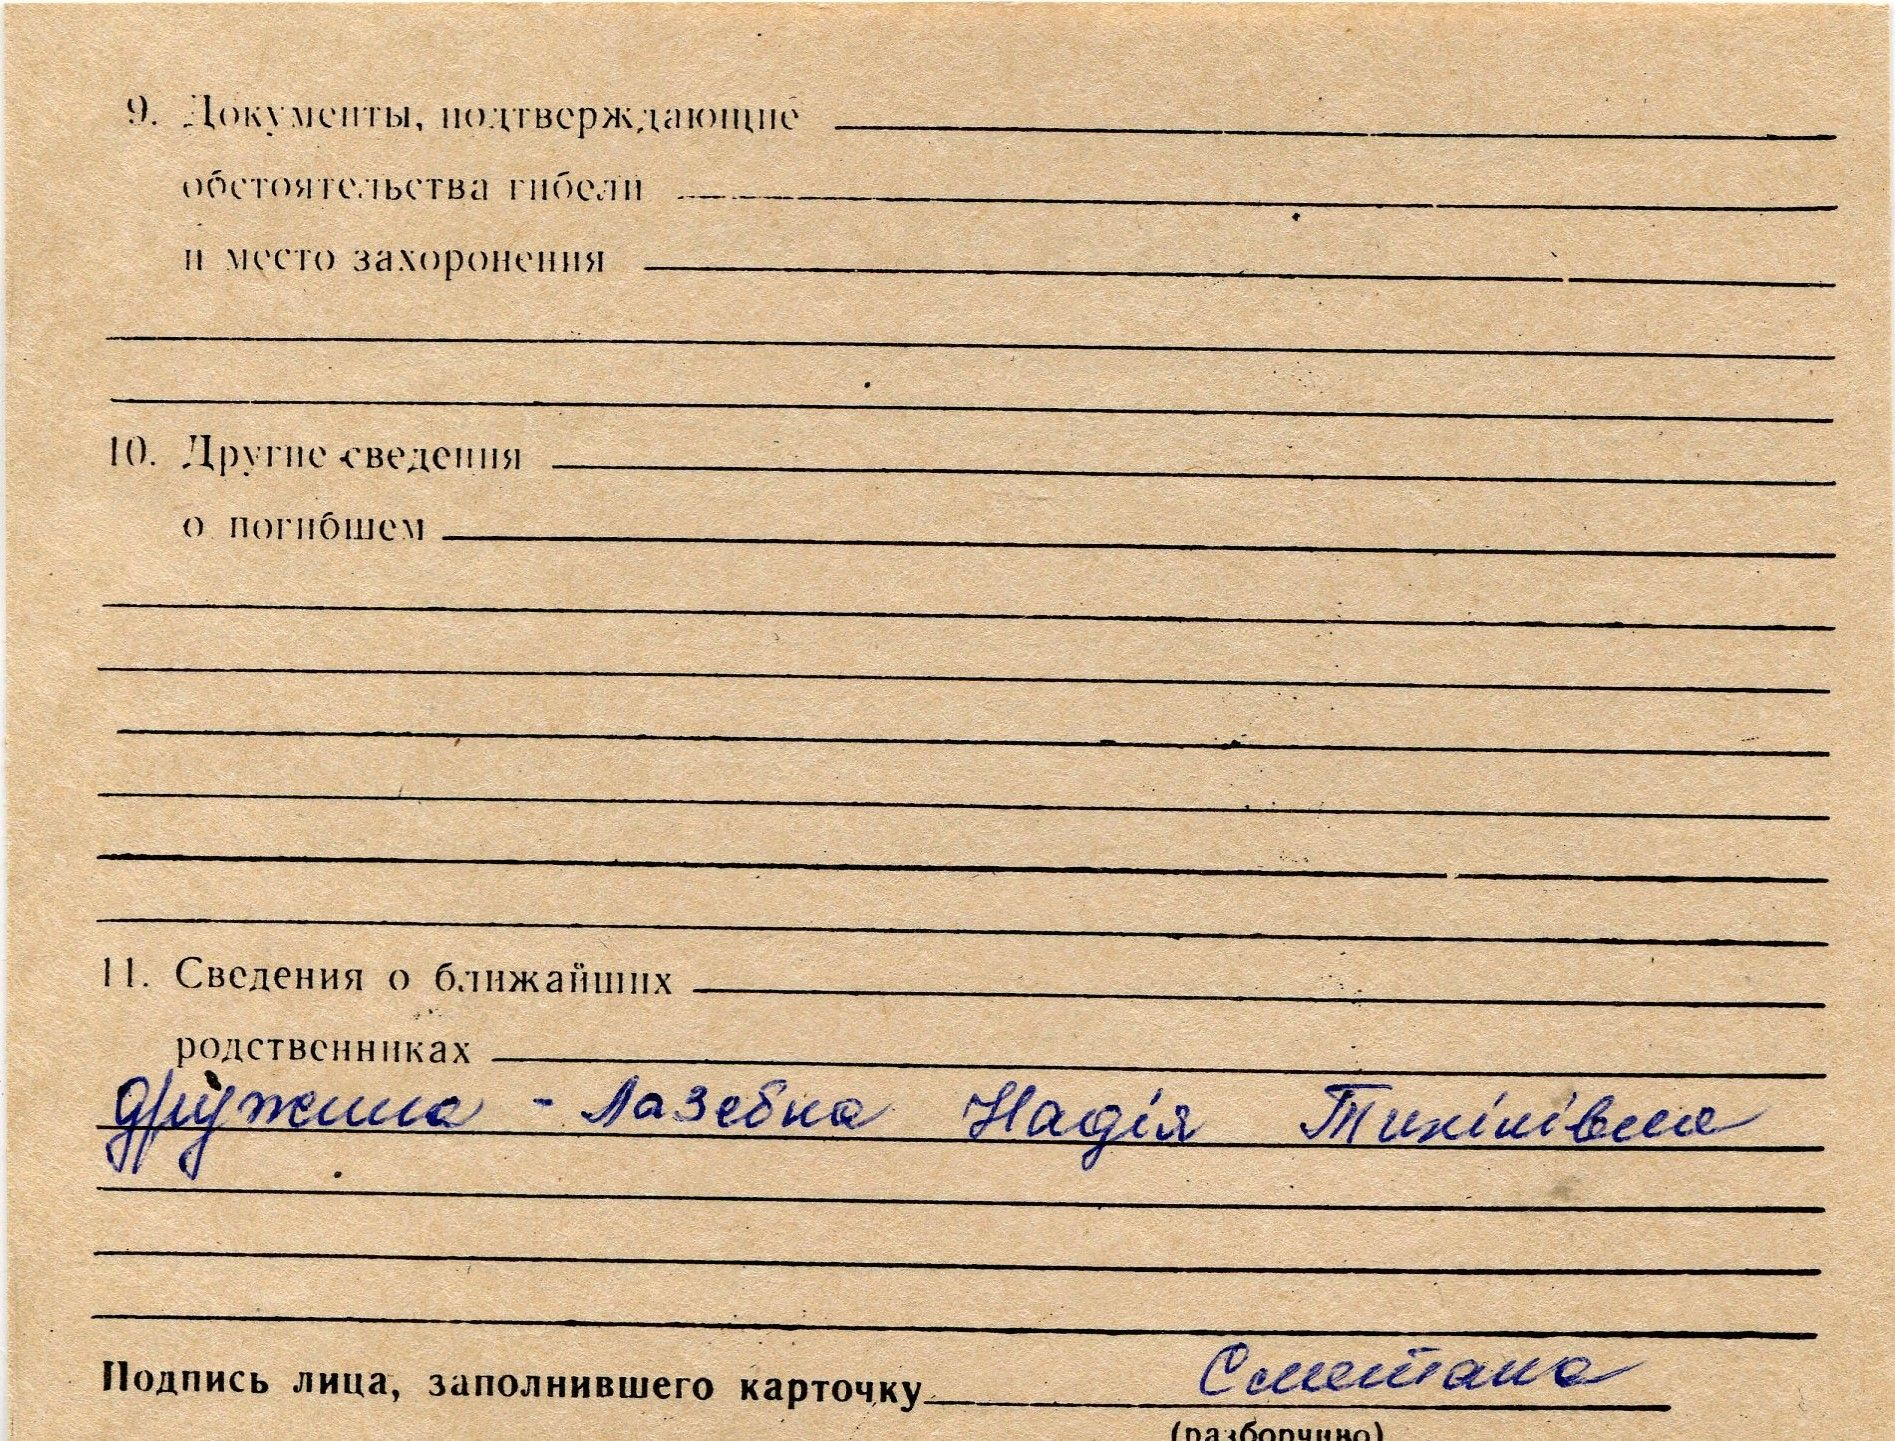 9. Документы, подтверждающие
обстоятельства гибели
и место захоронения
10. Другие сведения
о погибшем
11. Сведения о ближайших
родственниках
дружина - Лазебна Надія Тихінівна
Подпись лица, заполнившего карточку Сметана
(разборчиво)